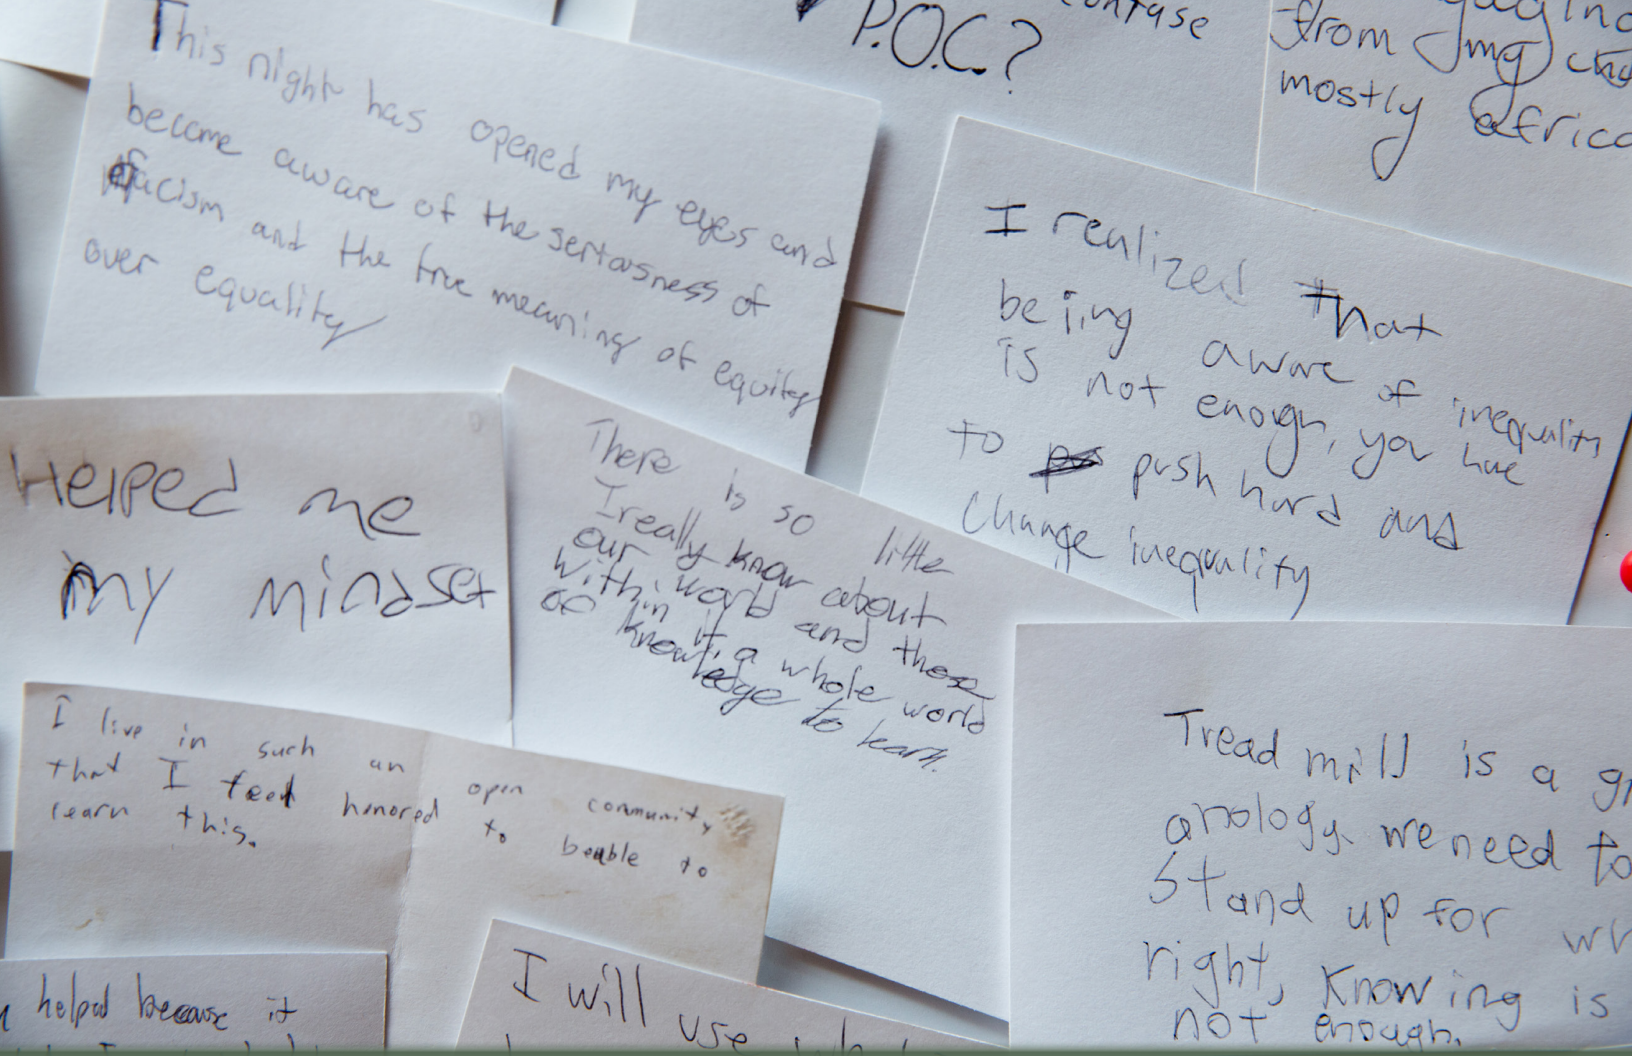 This night has opened my eyes and
become aware of the seriousness of
racism and the true meaning of equity
over equality
P.O.C.?
from
mostly
I realized that
being aware of inequality
is not enough, you have
to push hard and
change inequality
Helped me
my mindset
There is so little
I really know about
our world and those
within it, a whole world
of knowledge to learn.
I live in such an open community
that I feel honored to beable to
learn this.
Tread mill is a
anology. we need to
Stand up for
right, Knowing is
not enough.
helped because it
I will use